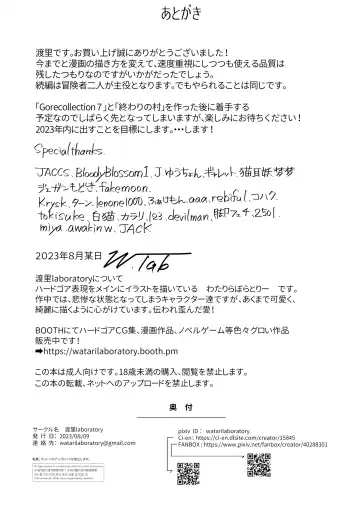 あとがき
渡里です。お買い上げ誠にありがとうございました！
今までと漫画の描き方を変えて、速度重視にしつつも使える品質は
残したつもりなのですがいかがだったでしょう。
続編は冒険者二人が主役となります。でもやられることは同じです。
「Gorecollection７」と「終わりの村」を作った後に着手する
予定なのでしばらく先となってしまいますが、楽しみにお待ちください！
2023年内に出すことを目標にします。・・・します！
Specialthanks.
JACCS. BloodyBlossom1. J. ゆうちょん. ギャレット. 猫耳妖夢夢
ジェガンもどき. fakemoon.
Kryck. ターン. lenone1000. ふぁいもん. aaa. rebiful. コハク.
tokisuke. 白猫. カラリ. 123. devilman. 脚フェチ. 2501.
miya. awakin w. JACK
2023年8月某日 W.lab
渡里laboratoryについて
ハードゴア表現をメインにイラストを描いている　わたりらぼらとりー　です。
作中では、悲惨な状態となってしまうキャラクター達ですが、あくまで可愛く、
綺麗に描くように心がけています。伝われ歪んだ愛！
BOOTHにてハードゴアCG集、漫画作品、ノベルゲーム等色々グロい作品
販売中です！
➡https://watarilaboratory.booth.pm
この本は成人向けです。18歳未満の購入、閲覧を禁止します。
この本の転載、ネットへのアップロードを禁止します。
奥　付
サークル名　渡里laboratory
発 行 日：　2023/08/09
連 絡 先：　watarilaboratory@gmail.com
pixiv ID：　watarilaboratory
Ci-en：https://ci-en.dlsite.com/creator/15845
FANBOX：https://www.pixiv.net/fanbox/creator/40288301
転載、ネットへのアップロードを禁止します。